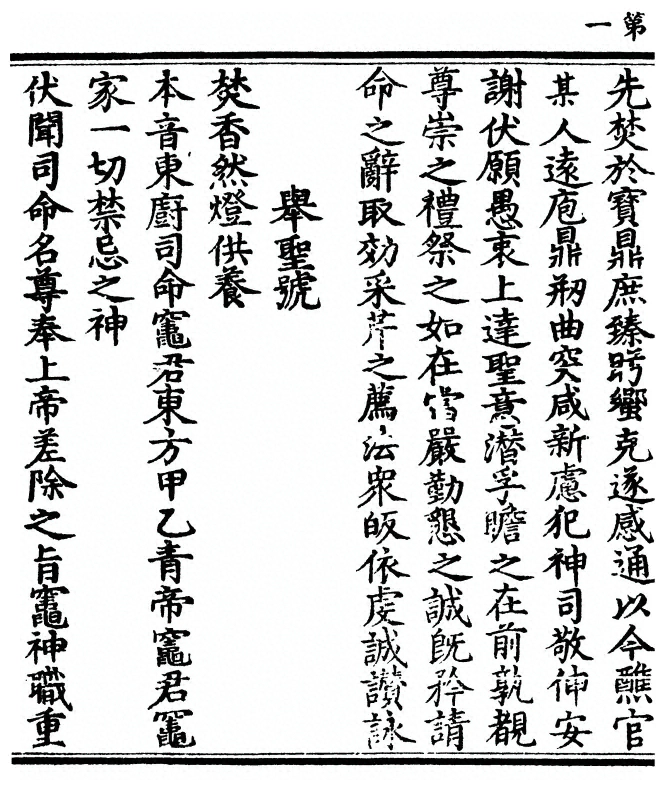 第一
先焚於寶鼎庶臻肹蠁克遂感通以今醮官
某人遠庖鼎剏曲突咸新慮犯神司敬伸安
謝伏願愚衷上達聖意潛孚瞻之在前孰覩
尊崇之禮祭之如在嚴勤懇之誠旣矜請
命之辭取効采芹之薦法衆皈依虔誠讚詠
舉聖號
焚香然燈供養
本音東廚司命竈君東方甲乙青帝竈君竈
家一切禁忌之神
伏聞司命名尊奉上帝差除之旨竈神職重